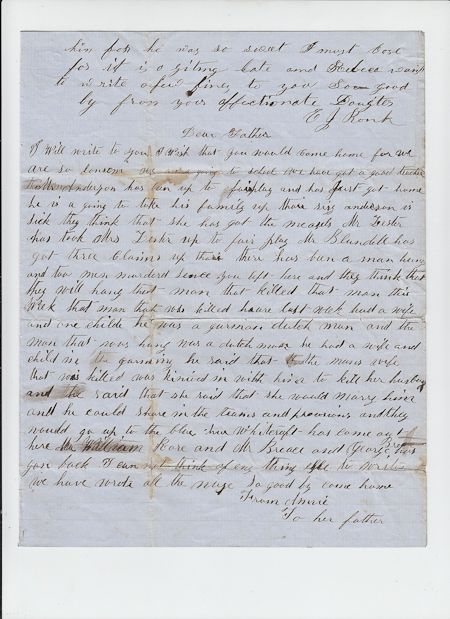 him for he was so sweet I must close
for it is a giting late and Rebeca wants
to write a few lines to you So good
by from your affectionate Daughter
E J Ronk
Dear Father
I Will write to you I Wish that you would come home for we
are so Lonsom we are going to school we have got a good teacher
Anderson has ben up to fairplay and has Just got home
he is a going to take his family up there anderson is
sick they think that she has got the measels Mr Lester
has took Mrs Lester up to fair play Mr Blundell has
got three claims up there has ben a man hung
and two men murderd Sence you left here and they think that
they will hang that man that killed that man this
Week that man that was killed here last week had a wife
and one childe he was a garman dutch man and the
man that was hung was a dutch man he had a wife and
child in the garminy he said that the mans wife
that was killed was hinived in with him to kill her husband
and he said that she said that she would marry him
and he could share in the teams and provisions and they
would go up to the blue Whitcraft has come out
here Mr William Hore and Mr Breace and George has
gon back I can not think of eny thing else to write
we have wrote all the nuse So good by come home
From Amare
To her father